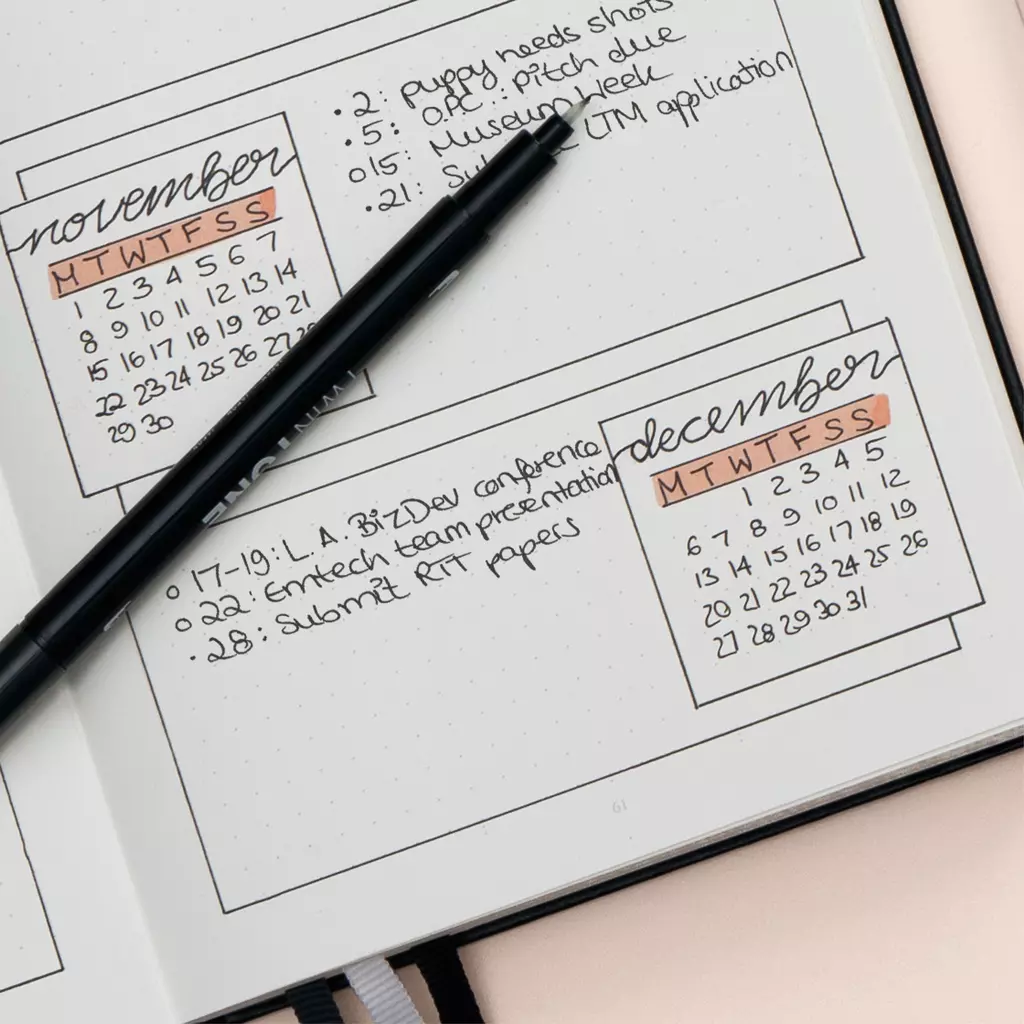 november
M T W T F S S
1 2 3 4 5 6 7
8 9 10 11 12 13 14
15 16 17 18 19 20 21
22 23 24 25 26 27
29 30
• 2: puppy needs shots
• 5: O.P.C.: pitch due
o 15: Museum Week
• 21: LTM application
december
M T W T F S S
1 2 3 4 5
6 7 8 9 10 11 12
13 14 15 16 17 18 19
20 21 22 23 24 25 26
27 28 29 30 31
o 17-19: L.A. BizDev conference
o 22: Emtech team presentation
• 28: Submit RIT papers
TWIN TONE
61